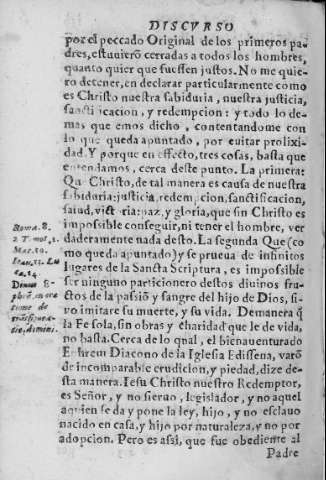 DISCVRSO
por el peccado Original de los primeros pa
dres, estuuierõ cerradas a todos los hombres,
quanto quier que fuessen justos. No me quie
ro detener, en declarar particularmente como
es Christo nuestra sabiduria, nuestra justicia,
sancti icacion, y redempcion: y todo lo de
mas que emos dicho, contentandome con
lo que queda apuntado, por euitar prolixi
dad. Y porque en effecto, tres cosas, basta que
entendamos, cerca deste punto. La primera:
Qu Christo, de tal manera es causa de nuestra
sabiduria: justicia, redempcion, sanctificacion,
salud, victoria: paz, y gloria, que sin Christo es
impossible conseguir, ni tener el hombre, ver
daderamente nada desto. La segunda Que (co
mo queda apuntado) y se prueua de infinitos
lugares de la Sancta Scriptura, es impossible
ser ninguno participionero destos diuinos fru-
ctos de la passiõ y sangre del hijo de Dios, si-
no imitare su muerte, y su vida. Demanera q̃
la Fe sola, sin obras y charidad que le de vida,
no basta. Cerca de lo qual, el bienauenturado
Ephrem Diacono de la Iglesia Edissena, varõ
de incomparable erudicion, y piedad, dize de-
sta manera. Iesu Christo nuestro Redemptor,
es Señor, y no sieruo, legislador, y no aquel
a quien se da y pone la ley, hijo, y no esclauo
nacido en casa, y hijo por naturaleza, y no por
adopcion. Pero es assi, que fue obediente al
Padre
Roma. 8.
2 Timot. 2.
Mar. 10.
Ioan. 13. Lu
ca. 14.
Diuus E-
phrē. in ora
tione de
trāsfigura-
tio, dimini.